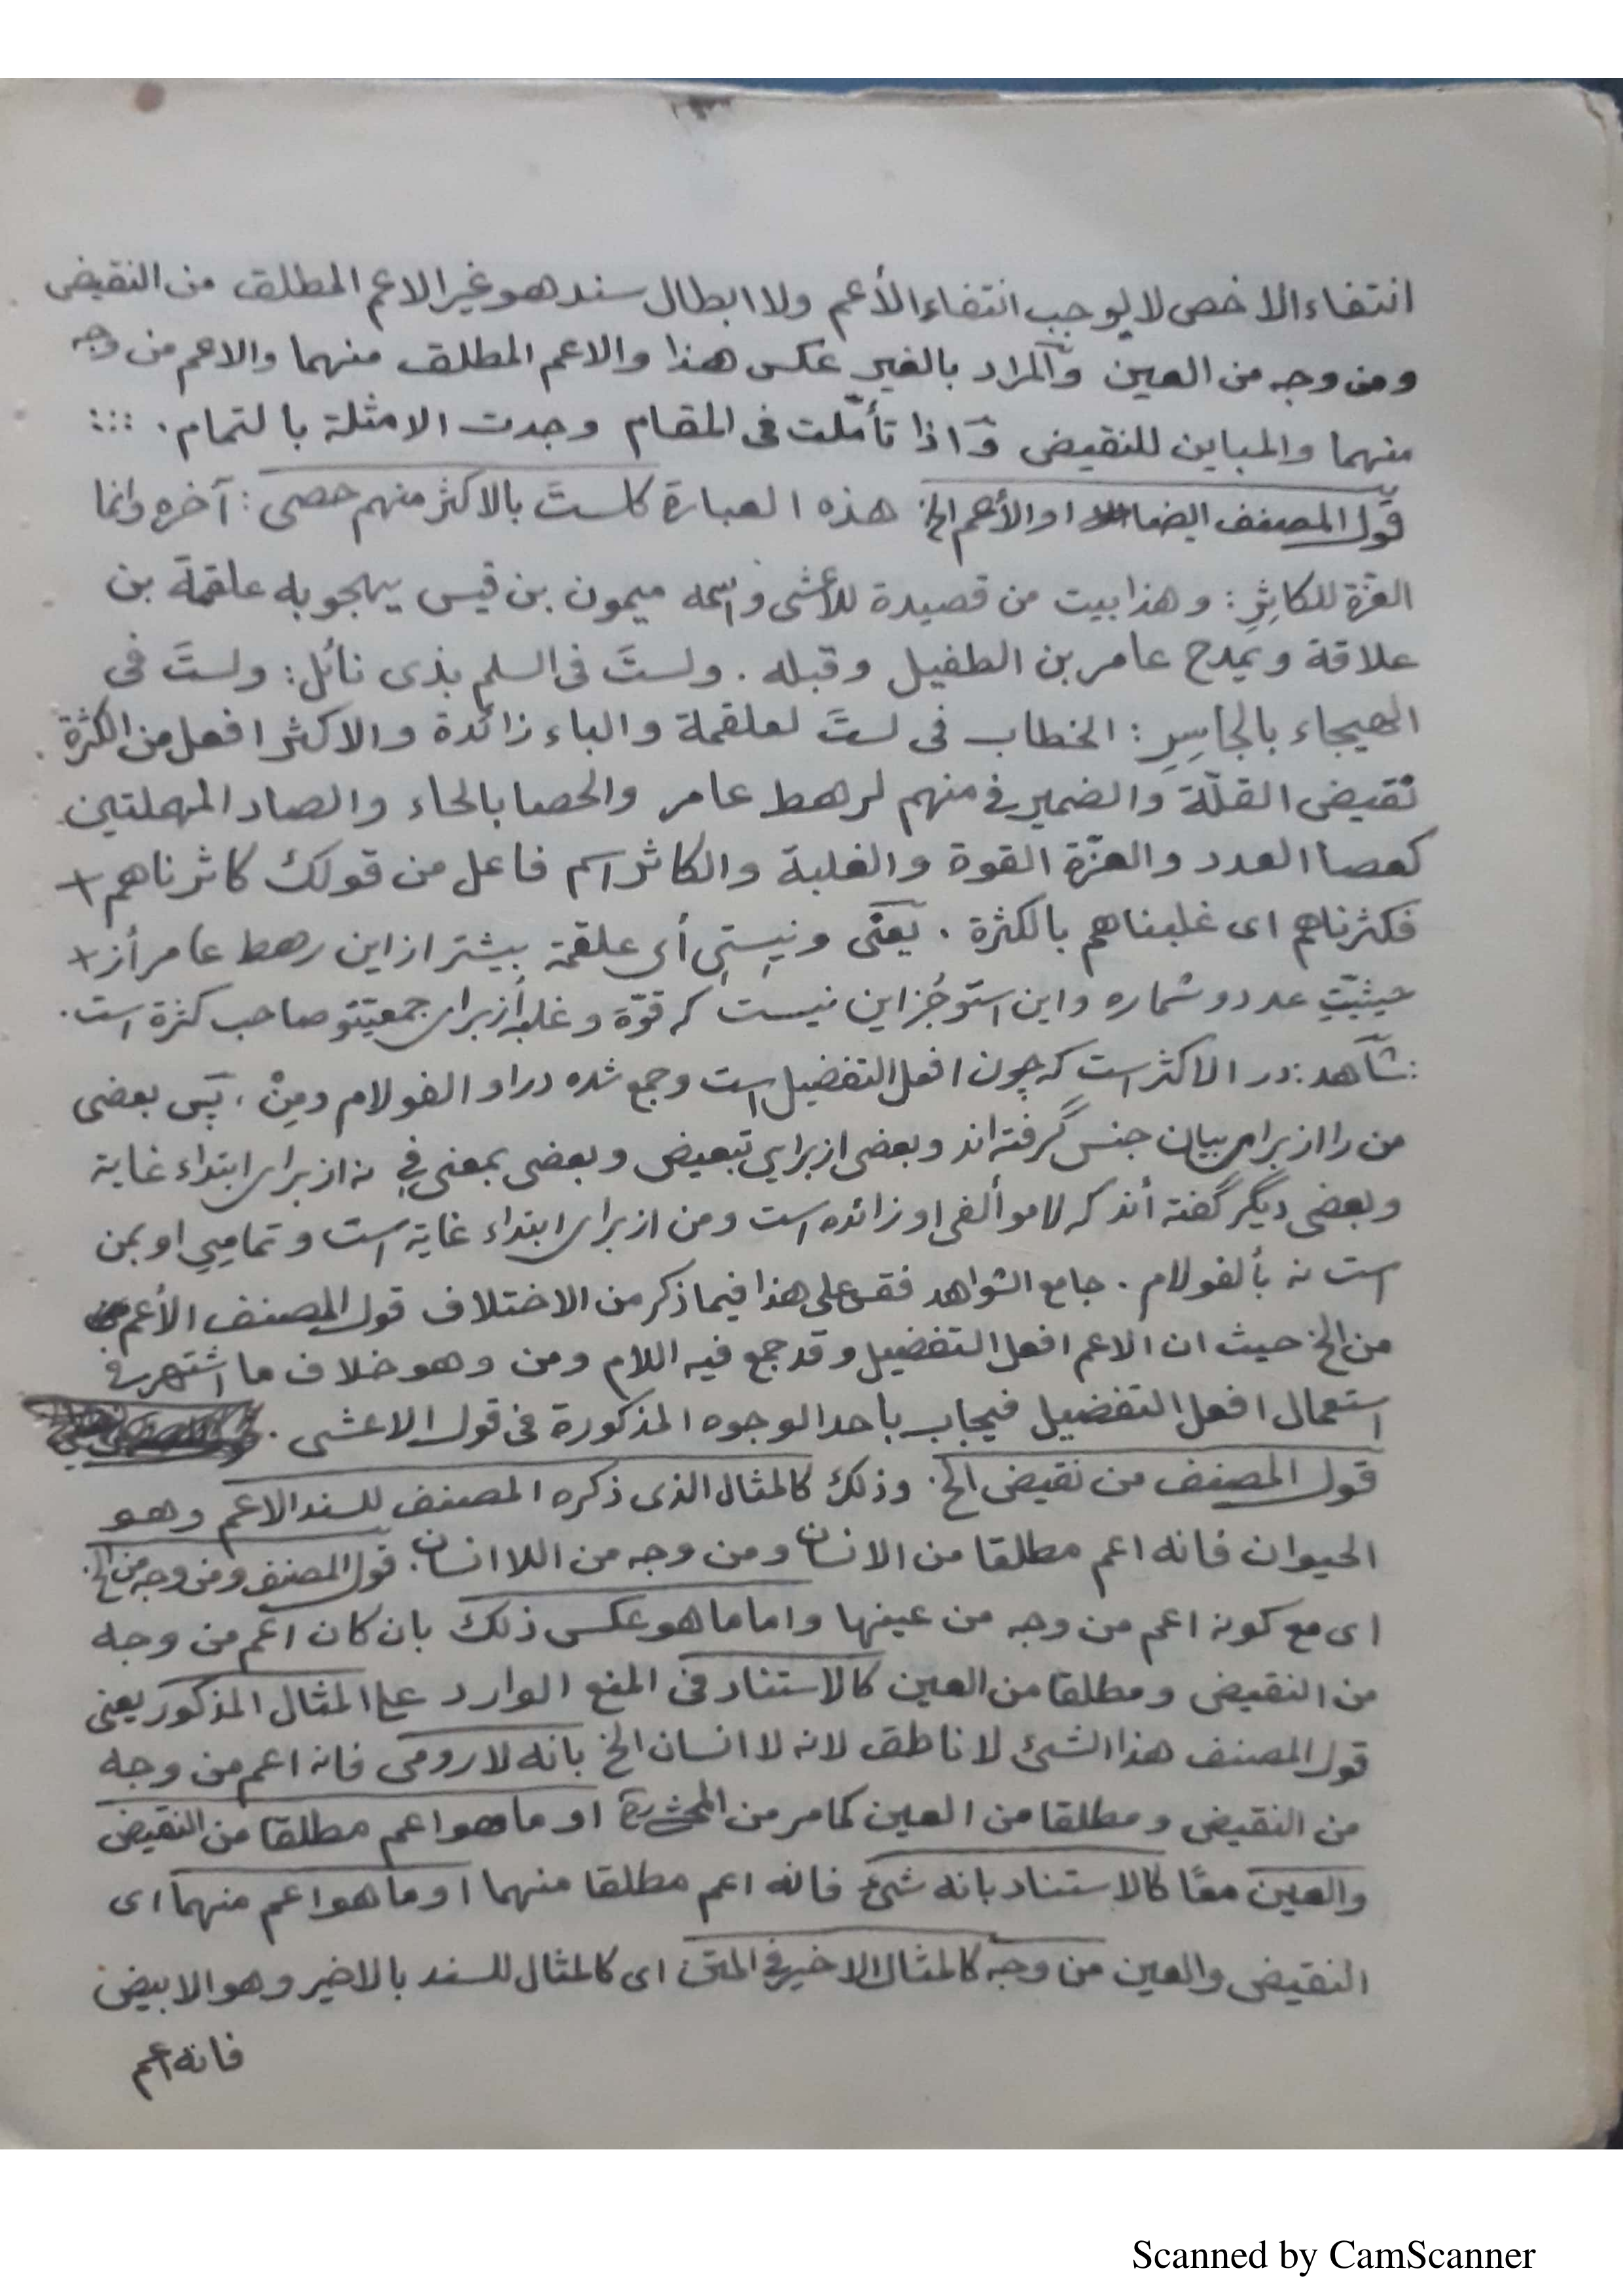 انتفاء الاخص لا يوجب انتفاء الأعم ولا ابطال سند هو غير الاعم المطلق من النقيض
ومن وجه من العين والمراد بالغير عكس هذا والاعم المطلق منهما والاعم من وجه
منهما والمباين للنقيض واذا تأملت فى المقام وجدت الامثلة بالتمام . :::
قول المصنف ايضا او الأعم الخ هذه العبارة كلستَ بالاكثر منهم حصى : آخره وانما
العزّة للكاثِرِ : وهذا بيت من قصيدة للأعشى واسمه ميمون بن قيس يهجو به علقمة بن
علاقة ويمدح عامر بن الطفيل وقبله . ولستَ فى السلم بذى نائل : ولستَ فى
الهيجاء بالجاسِرِ : الخطاب فى لستَ لعلقمة والباء زائدة والاكثر افعل من الكثرة .
نقيض القلّة والضمير فى منهم لرهط عامر والحصا بالحاء والصاد المهملتين
كعصا العدد والعزّة القوة والغلبة والكاثر اسم فاعل من قولك كاثرناهم +
فكثرناهم اى غلبناهم بالكثرة . يعنى ونيستِى أى علقمة بيشتر از اين رهط عامر أز +
حيثيّتِ عدد و شماره و اين استو جُز اين نيست كه قوّة و غلبه أز براى جمعيّتو صاحب كثرة است .
: شاهد : در الاكثر است كه چون افعل التفضيل است و جمع شده در او الفو لام ومِنْ ، پس بعضى
من را از براى بيان جنس گرفته اند و بعضى از براي تبعيض و بعضى بمعنى فى نه از براى ابتداء غاية
و بعضى ديگر گفته أند كه لامو ألفى او زائده است ومن از براى ابتداء غاية است و تماميي او بمن
است نه بألفو لام . جامع الشواهد فقس على هذا فيما ذكر من الاختلاف قول المصنف الأعم
من الخ حيث ان الاعم افعل التفضيل وقد جمع فيه اللام ومن وهو خلاف ما اشتهر فى
استعمال افعل التفضيل فيجاب باحد الوجوه المذكورة فى قول الاعشى .
قول المصنف من نقيض الخ . وذلك كالمثال الذى ذكره المصنف للسند الاعم وهو
الحيوان فانه اعم مطلقا من الانسان ومن وجه من اللا انسان . قول المصنف ومن وجه من الخ .
اى مع كونه اعم من وجه من عينها واما ما هو عكس ذلك بان كان اعم من وجه
من النقيض ومطلقا من العين كالاستناد فى المنع الوارد على المثال المذكور يعنى
قول المصنف هذا الشئ لا ناطق لانه لا انسان الخ بانه لا رومى فانه اعم من وجه
من النقيض ومطلقا من العين كما مر من او ما هو اعم مطلقا من النقيض
والعين معًا كالاستناد بانه شئ فانه اعم مطلقا منهما او ما هو اعم منهما اى
النقيض والعين من وجه كالمثال الاخير فى المتن اى كالمثال للسند بالاخير وهو الابيض
فانه اعم
Scanned by CamScanner